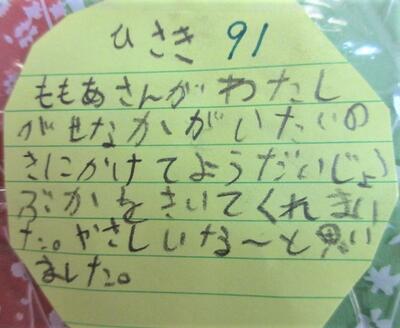 ひさき 91
ももあさんが わたし
がせなかがいたいの
きにかけてようだいじょ
ぶかときいてくれまし
た。やさしいな～と思い
ました。